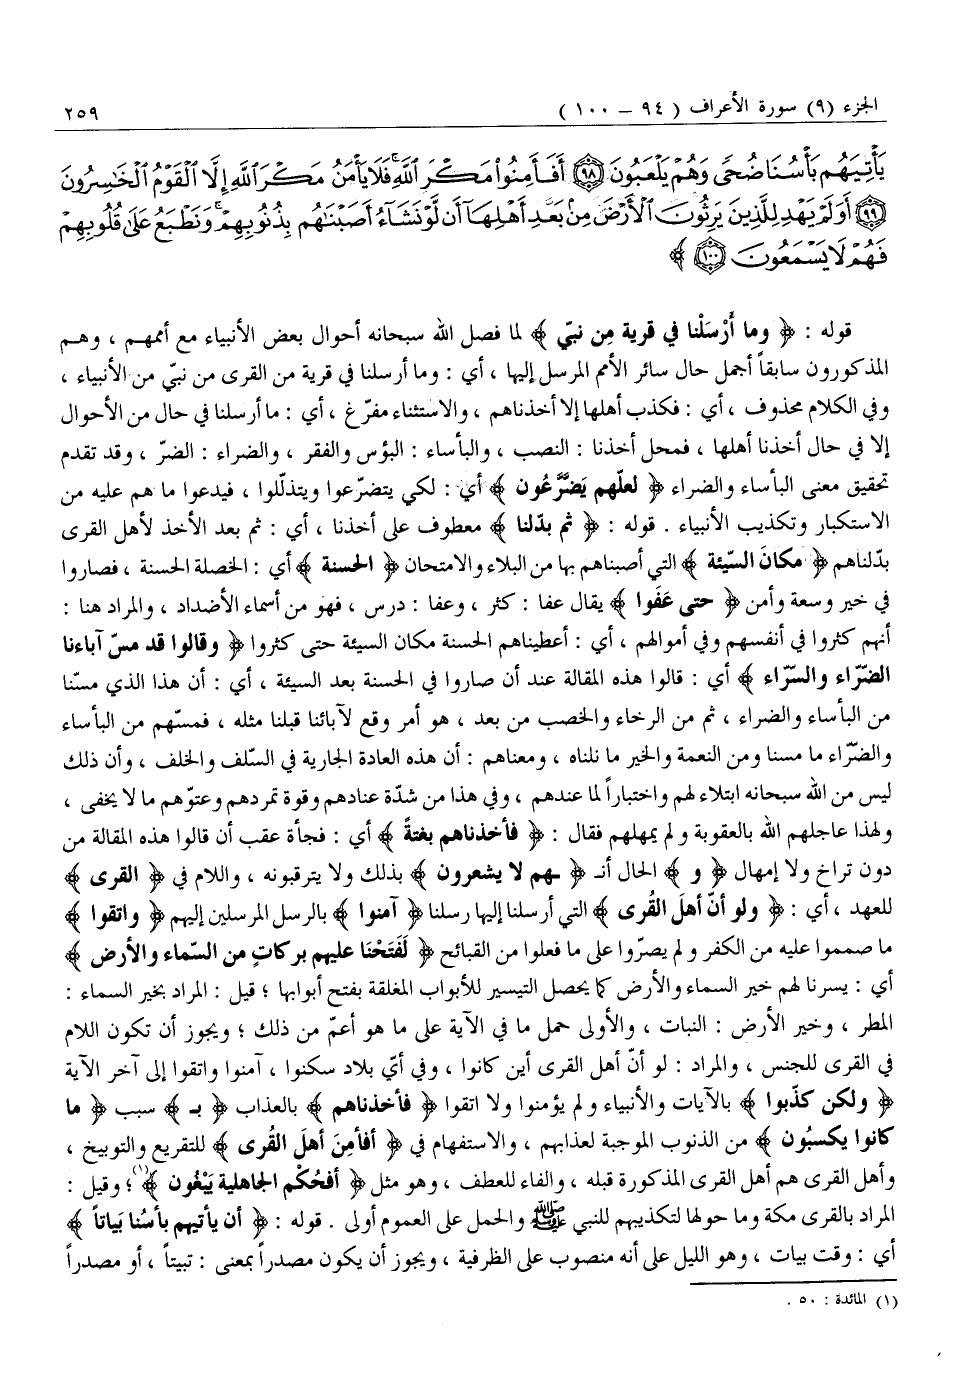 الجزء (٩) سورة الأعراف ( ٩٤ – ١٠٠ ) ٢٥٩
يَأْتِيَهُم بَأْسُنَا ضُحًى وَهُمْ يَلْعَبُونَ ﴿٩٨﴾ أَفَأَمِنُوا۟ مَكْرَ ٱللَّهِ ۚ فَلَا يَأْمَنُ مَكْرَ ٱللَّهِ إِلَّا ٱلْقَوْمُ ٱلْخَٰسِرُونَ
﴿٩٩﴾ أَوَلَمْ يَهْدِ لِلَّذِينَ يَرِثُونَ ٱلْأَرْضَ مِنۢ بَعْدِ أَهْلِهَآ أَن لَّوْ نَشَآءُ أَصَبْنَٰهُم بِذُنُوبِهِمْ ۚ وَنَطْبَعُ عَلَىٰ قُلُوبِهِمْ
فَهُمْ لَا يَسْمَعُونَ ﴿١٠٠﴾ ﴾
قوله : ﴿ وما أَرْسَلْنا في قرية مِن نبيّ ﴾ لما فصل الله سبحانه أحوال بعض الأنبياء مع أممهم ، وهم
المذكورون سابقاً أجمل حال سائر الأمم المرسل إليها ، أي : وما أرسلنا في قرية من القرى من نبيّ من الأنبياء ،
وفي الكلام محذوف ، أي : فكذب أهلها إلا أخذناهم ، والاستثناء مفرّغ ، أي : ما أرسلنا في حال من الأحوال
إلا في حال أخذنا أهلها ، فمحل أخذنا : النصب ، والبأساء : البؤس والفقر ، والضراء : الضرّ ، وقد تقدم
تحقيق معنى البأساء والضراء ﴿ لعلّهم يَضَّرَّعُون ﴾ أي : لكي يتضرّعوا ويتذلّلوا ، فيدعوا ما هم عليه من
الاستكبار وتكذيب الأنبياء . قوله : ﴿ ثم بدّلنا ﴾ معطوف على أخذنا ، أي : ثم بعد الأخذ لأهل القرى
بدّلناهم ﴿ مكانَ السيّئة ﴾ التي أصبناهم بها من البلاء والامتحان ﴿ الحسنة ﴾ أي : الخصلة الحسنة ، فصاروا
في خير وسعة وأمن ﴿ حتى عَفَوا ﴾ يقال عفا : كثر ، وعفا : درس ، فهو من أسماء الأضداد ، والمراد هنا :
أنهم كثروا في أنفسهم وفي أموالهم ، أي : أعطيناهم الحسنة مكان السيئة حتى كثروا ﴿ وقالوا قد مسّ آباءنا
الضّرّاء والسّرّاء ﴾ أي : قالوا هذه المقالة عند أن صاروا في الحسنة بعد السيئة ، أي : أن هذا الذي مسّنا
من البأساء والضراء ، ثم من الرخاء والخصب من بعد ، هو أمر وقع لآبائنا قبلنا مثله ، فمسّهم من البأساء
والضرّاء ما مسنا ومن النعمة والخير ما نلناه ، ومعناهم : أن هذه العادة الجارية في السّلف والخلف ، وأن ذلك
ليس من الله سبحانه ابتلاء لهم واختباراً لما عندهم ، وفي هذا من شدّة عنادهم وقوة تمردهم وعتوّهم ما لا يخفى ،
ولهذا عاجلهم الله بالعقوبة ولم يمهلهم فقال : ﴿ فأخذناهم بغتةً ﴾ أي : فجأة عقب أن قالوا هذه المقالة من
دون تراخ ولا إمهال ﴿ و ﴾ الحال أنـ ﴿ ـهم لا يشعرون ﴾ بذلك ولا يترقبونه ، واللام في ﴿ القرى ﴾
للعهد ، أي : ﴿ ولو أنّ أهلَ القُرى ﴾ التي أرسلنا إليها رسلنا ﴿ آمنوا ﴾ بالرسل المرسلين إليهم ﴿ واتقوا ﴾
ما صمموا عليه من الكفر ولم يصرّوا على ما فعلوا من القبائح ﴿ لَفَتَحْنا عليهم بركاتٍ من السّماء والأرض ﴾
أي : يسرنا لهم خير السماء والأرض كما يحصل التيسير للأبواب المغلقة بفتح أبوابها ؛ قيل : المراد بخير السماء :
المطر ، وخير الأرض : النبات ، والأولى حمل ما في الآية على ما هو أعمّ من ذلك ؛ ويجوز أن تكون اللام
في القرى للجنس ، والمراد : لو أنّ أهل القرى أين كانوا ، وفي أيّ بلاد سكنوا ، آمنوا واتقوا إلى آخر الآية
﴿ ولكن كذّبوا ﴾ بالآيات والأنبياء ولم يؤمنوا ولا اتقوا ﴿ فأخذناهم ﴾ بالعذاب ﴿ بـ ﴾ سبب ﴿ ما
كانوا يكسبُون ﴾ من الذنوب الموجبة لعذابهم ، والاستفهام في ﴿ أفأمِنَ أهلَ القُرى ﴾ للتقريع والتوبيخ ،
وأهل القرى هم أهل القرى المذكورة قبله ، والفاء للعطف ، وهو مثل ﴿ أفحُكْم الجاهلية يَبْغُون ﴾(١) ؛ وقيل :
المراد بالقرى مكة وما حولها لتكذيبهم للنبي ﷺ والحمل على العموم أولى . قوله : ﴿ أن يأتيهم بأسُنا بَياتاً ﴾
أي : وقت بيات ، وهو الليل على أنه منصوب على الظرفية ، ويجوز أن يكون مصدراً بمعنى : تبيتاً ، أو مصدراً
(١) المائدة : ٥٠ .